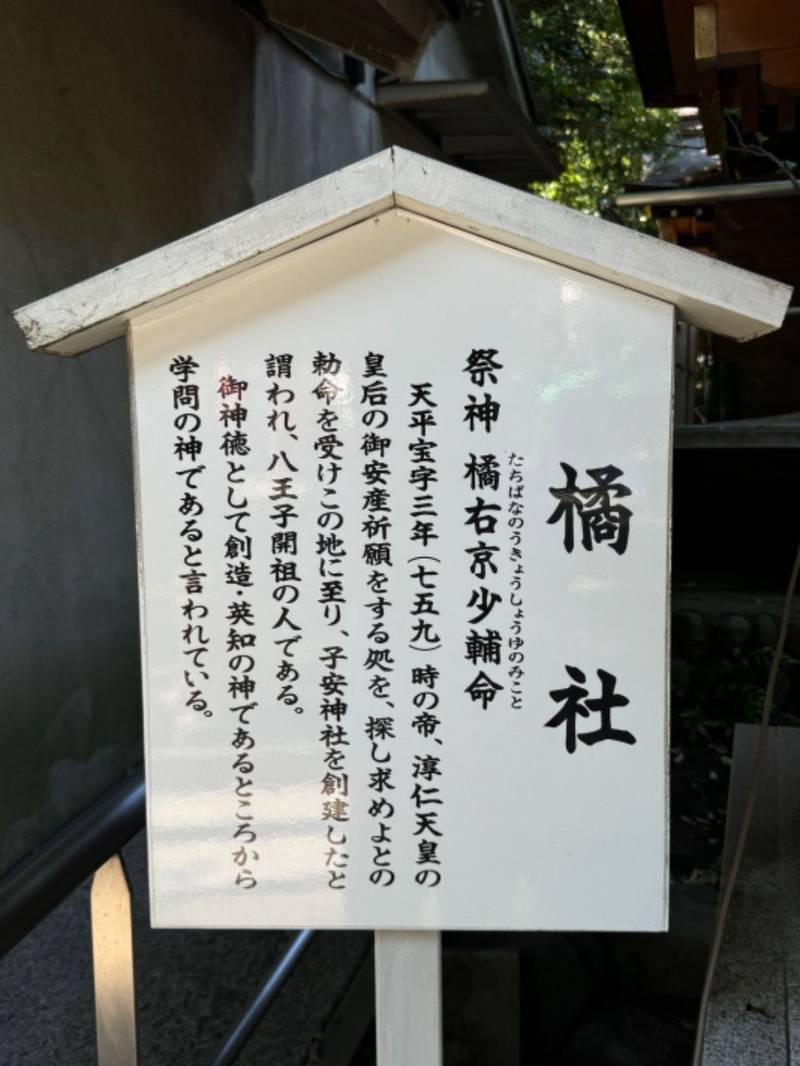 橘社
たちばなのうきょうしょうゆのみこと
祭神 橘右京少輔命
天平宝字三年（七五九）時の帝、淳仁天皇の
皇后の御安産祈願をする処を、探し求めよとの
勅命を受けこの地に至り、子安神社を創建したと
謂われ、八王子開祖の人である。
御神徳として創造・英知の神であるところから
学問の神であると言われている。